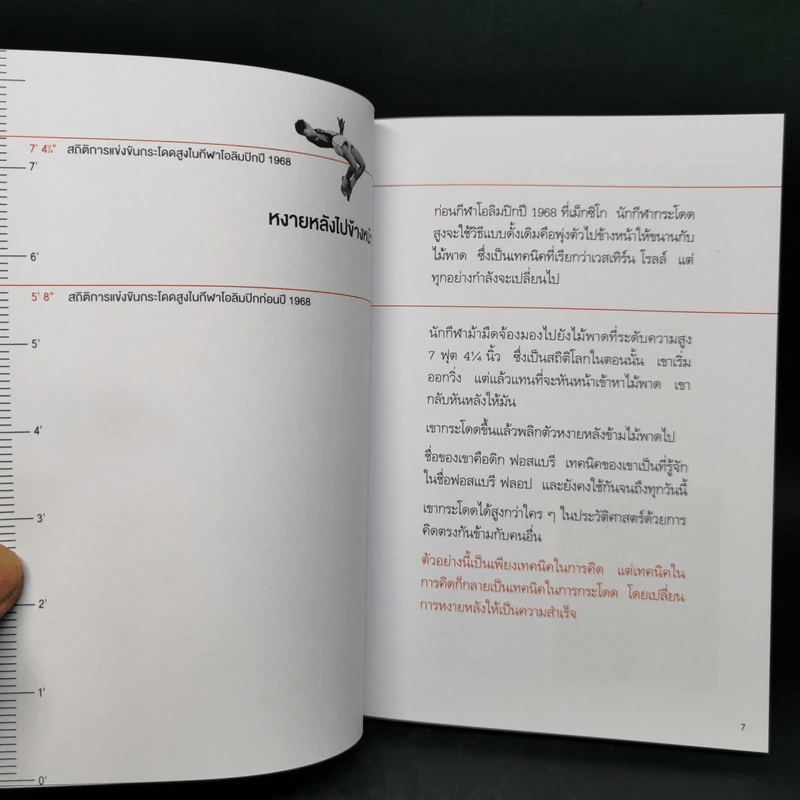 7' 4¼" สถิติการแข่งขันกระโดดสูงในกีฬาโอลิมปิกปี 1968
7'
หงายหลังไปข้างหน้า
6'
5' 8" สถิติการแข่งขันกระโดดสูงในกีฬาโอลิมปิกก่อนปี 1968
5'
4'
3'
2'
1'
0'
ก่อนกีฬาโอลิมปิกปี 1968 ที่เม็กซิโก นักกีฬากระโดด
สูงจะใช้วิธีแบบดั้งเดิมคือพุ่งตัวไปข้างหน้าให้ขนานกับ
ไม้พาด ซึ่งเป็นเทคนิคที่เรียกว่าเวสเทิร์น โรลล์ แต่
ทุกอย่างกำลังจะเปลี่ยนไป
นักกีฬาม้ามืดจ้องมองไปยังไม้พาดที่ระดับความสูง
7 ฟุต 4¼ นิ้ว ซึ่งเป็นสถิติโลกในตอนนั้น เขาเริ่ม
ออกวิ่ง แต่แล้วแทนที่จะหันหน้าเข้าหาไม้พาด เขา
กลับหันหลังให้มัน
เขากระโดดขึ้นแล้วพลิกตัวหงายหลังข้ามไม้พาดไป
ชื่อของเขาคือดิก ฟอสแบรี เทคนิคของเขาเป็นที่รู้จัก
ในชื่อฟอสแบรี ฟลอป และยังคงใช้กันจนถึงทุกวันนี้
เขากระโดดได้สูงกว่าใคร ๆ ในประวัติศาสตร์ด้วยการ
คิดตรงกันข้ามกับคนอื่น
ตัวอย่างนี้เป็นเพียงเทคนิคในการคิด แต่เทคนิคใน
การคิดก็กลายเป็นเทคนิคในการกระโดด โดยเปลี่ยน
การหงายหลังให้เป็นความสำเร็จ
7